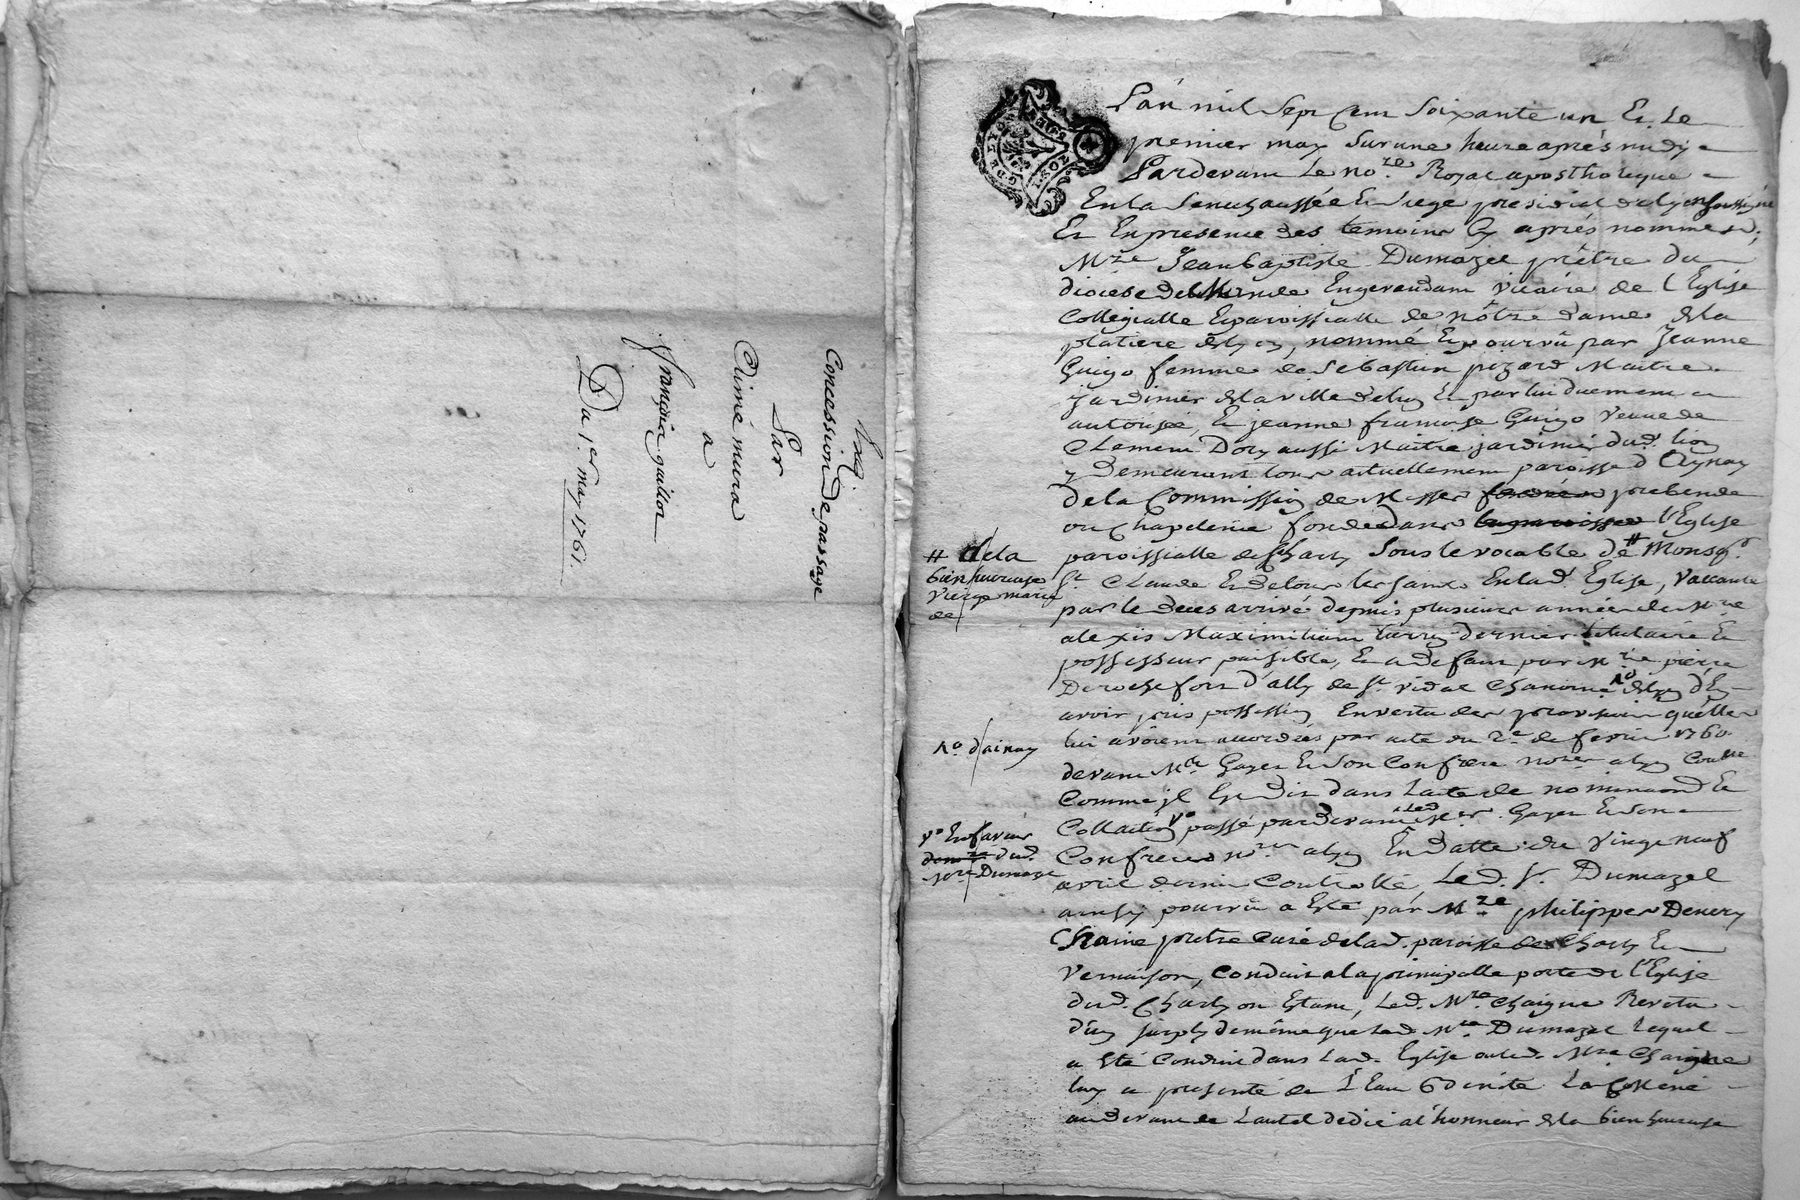 Concession de passage
Par
Aimé mura
a
françois guillot
Du 1.er may 1761.
L'an mil Sept Cent Soixante un Et Le
premier may Sur une heure après midy
Pardevant Le no.re Royal apostholique
En la Senechaussée Et Siege presidial de lyon soussigné
Et En presence des temoins Cy après nommés,
M.re Jean baptiste Dumazel prêtre du
diocese de Mende En gevaudam vicaire de l'Eglise
Collegialle Et paroissialle de nôtre dame de la
platiere de lyon, nommé Et pourvû par Jeanne
Guigo femme de Sebastien pizard Maitre
jardinier de la ville de lyon Et par lui duement
autorisée, Et jeanne françoise Guigo veuve de
Clement Dory aussi Maitre jardinier dud. lion
y demeurant tous actuellement paroisse d'Aynay
de la Commission de Messes prebende
ou Chapelenie fondée dans l'Eglise
paroissialle de Charly Sous le vocable de # Monsg.r
St. Claude Et de tous les saints En lad. Eglise, vaccante
par le deces arrivé depuis plusieurs années de M.re
alexis Maximiliam dernier titulaire Et
possesseur paisible, Et a defaut par M.re pierre
De rochefort d'ally de St. vidal Chanoine d'En
avoir pris possession En vertu des provisions qu'elles
lui avoient accordées par acte du 2.e de fevrier 1760
devant M.e Gayet Et Son Confrere no.res a lyon
Comme il Est dit dans l'acte de nomination Et
Collation passé pardevant led. M.e Gayet Et Son
Confrere no.res a lyon En datte du vingt neuf
avril dernier Controllé, Led. S.r Dumazel
ainsy pourvû a Eté par M.re philippes Denery
Chaine prêtre Curé de lad. paroisse de Charly Et
Vernaison, Conduit a la principalle porte de l'Eglise
dud. Charly ou Etant, Led. M.re Chaigne Revetu
d'un surply de même que led. M.re Dumazel Lequel
a Eté Conduit dans Lad. Eglise ou led. M.re Chaigne
luy a presenté de l'Eau Benite La mené
au devant de l'autel dedié a l'honneur de la bien heureuse
# de la
bien heureuse
vierge marie
de
d'ainay
En faveur
dud.
M.re Dumazel